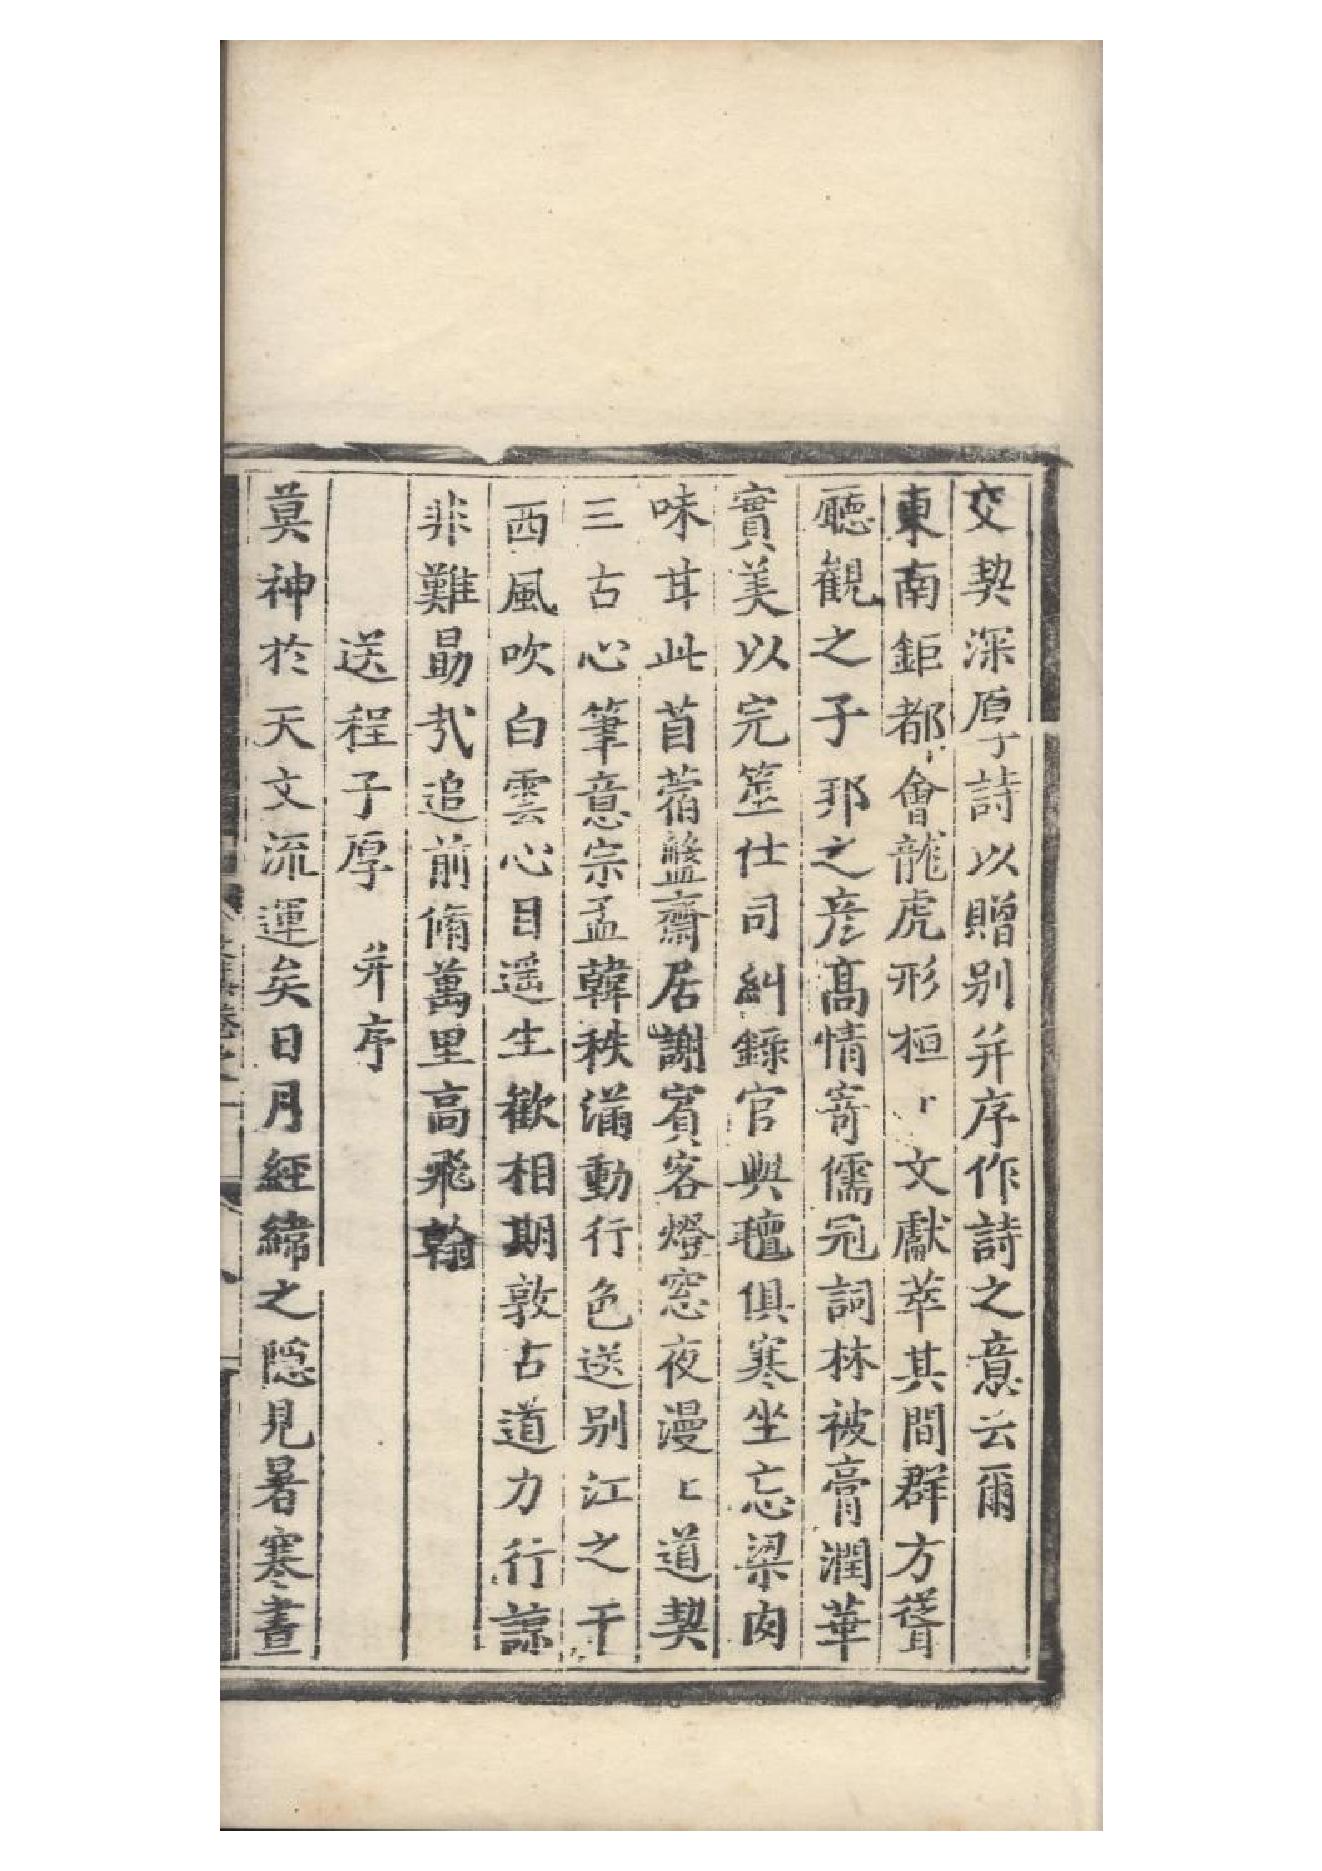 交契深厚詩以贈别并序作詩之意云爾
東南鉅都會龍虎形桓〻文獻萃其間群方聳
聽觀之子邦之彦高情寄儒冠詞林被膏潤華
實美以完筮仕司糾錄官與氊俱寒坐忘梁肉
味甘此苜蓿盤齋居謝賓客燈窓夜漫〻道契
三古心筆意宗孟韓秩滿動行色送别江之干
西風吹白雲心目遥生歡相期敦古道力行諒
非難勗㢤追前脩萬里高飛翰
送程子厚 并序
莫神於天文流運矣日月經緯之隱見暑寒晝